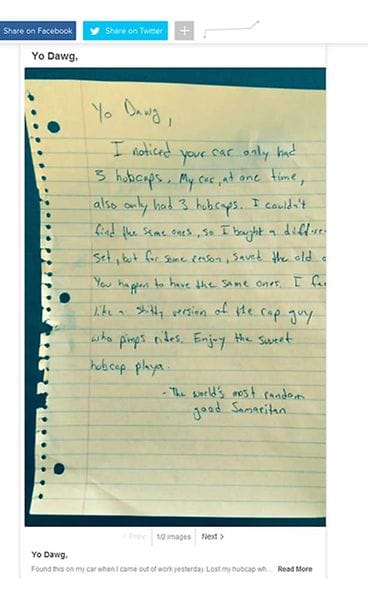 Share on Facebook
Share on Twitter
+
Yo Dawg,
Yo Dawg,
I noticed your car only had
3 hubcaps. My car, at one time,
also only had 3 hubcaps. I couldn't
find the same ones, so I bought a differe
set, but for some reason, saved the old o
You happen to have the same ones. I fe
like a shitty version of the rap guy
who pimps rides. Enjoy the sweet
hubcap playa.
- The world's most random
good Samaritan
< Prev 1/2 images Next >
Yo Dawg,
Found this on my car when I came out of work yesterday. Lost my hubcap wh... Read More